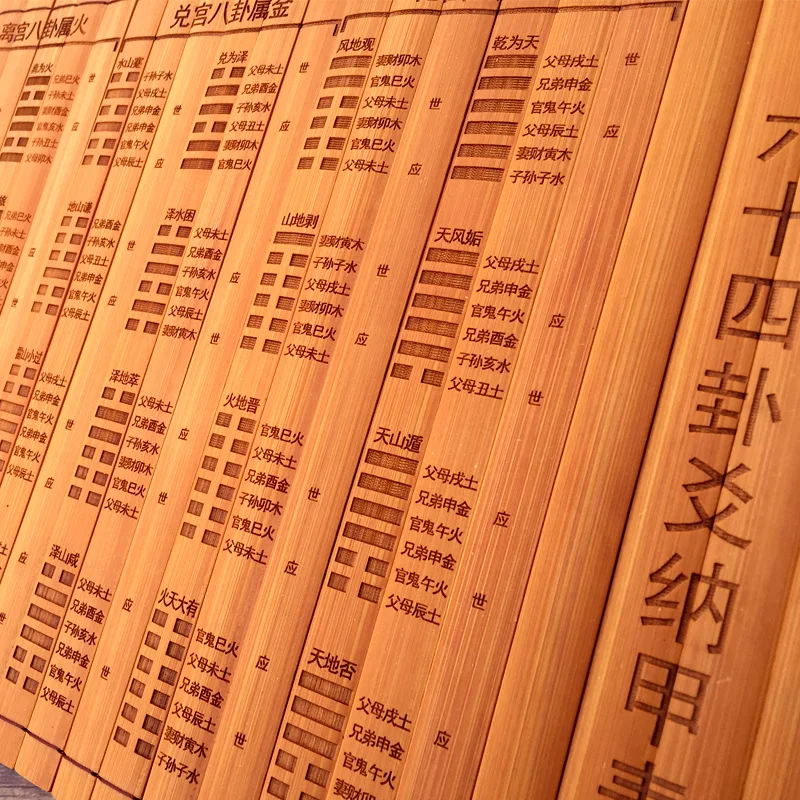 六十四卦爻纳甲表
乾为天
父母戌土 世
兄弟申金
官鬼午火
父母辰土 应
妻财寅木
子孙子水
天风姤
父母戌土
兄弟申金
官鬼午火 应
兄弟酉金
子孙亥水
父母丑土 世
天山遁
父母戌土
兄弟申金 应
官鬼午火
兄弟申金
官鬼午火 世
父母辰土
天地否
父母戌土 应
兄弟申金
官鬼午火
妻财卯木
风地观
妻财卯木
官鬼巳火
父母未土 世
妻财卯木
官鬼巳火
父母未土 应
山地剥
妻财寅木
子孙子水 世
父母戌土
妻财卯木
官鬼巳火 应
父母未土
火地晋
官鬼巳火
父母未土
兄弟酉金 世
子孙卯木
官鬼巳火
父母未土 应
火天大有
官鬼巳火 应
父母未土
兄弟酉金
父母辰土 世
妻财寅木
子孙子水
兑宫八卦属金
兑为泽
父母未土 世
兄弟酉金
子孙亥水
父母丑土 应
妻财卯木
官鬼巳火
泽水困
父母未土
兄弟酉金
子孙亥水 应
官鬼午火
父母辰土
妻财寅木 世
泽地萃
父母未土
兄弟酉金 应
子孙亥水
妻财卯木
官鬼巳火 世
父母未土
泽山咸
父母未土 应
兄弟酉金
子孙亥水
兄弟申金 世
官鬼午火
父母辰土
水山蹇
子孙子水
父母戌土
兄弟申金 世
兄弟申金
官鬼午火
父母辰土 应
地山谦
兄弟酉金
子孙亥水 世
父母丑土
兄弟申金
官鬼午火 应
父母辰土
雷山小过
父母戌土
兄弟申金
官鬼午火 世
兄弟申金
官鬼午火
父母辰土 应
离宫八卦属火
离为火
兄弟巳火 世
子孙未土
妻财酉金
官鬼亥水 应
子孙丑土
父母卯木